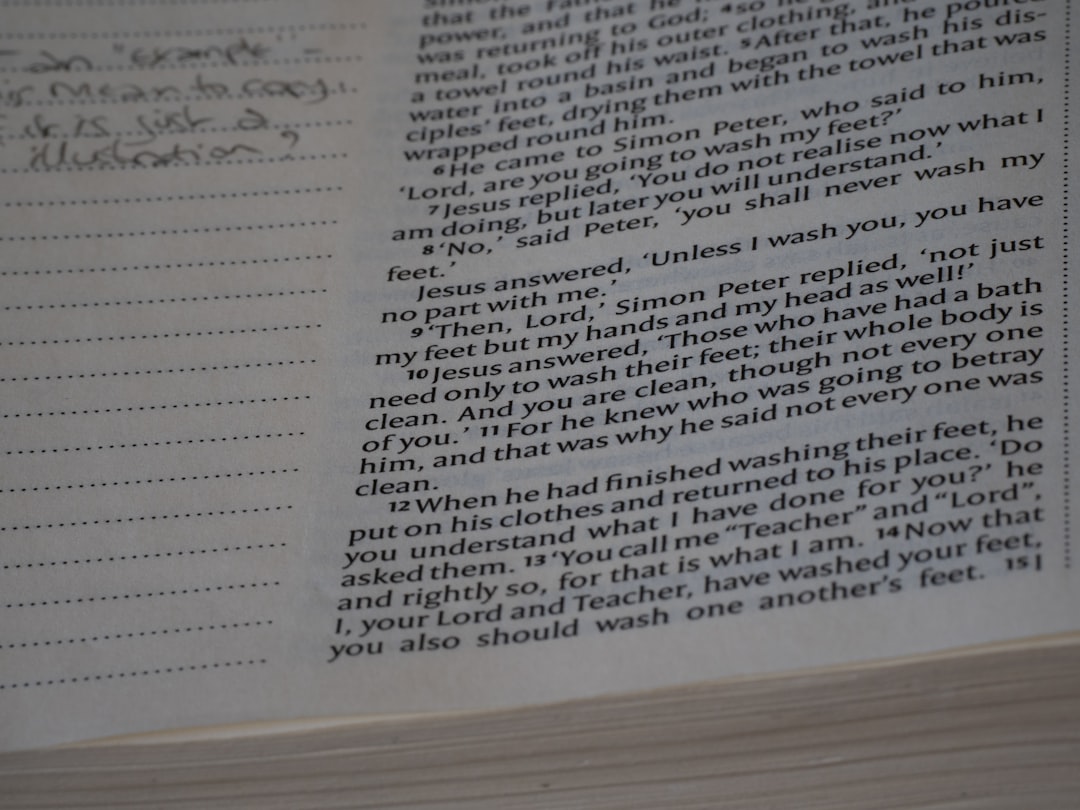 an "example" -
mean to copy.
it is just a
illustration?
that the Father
power, and that he
was returning to God; 4 so he
meal, took off his outer clothing, and
a towel round his waist. 5 After that, he poured
water into a basin and began to wash his dis-
ciples' feet, drying them with the towel that was
wrapped round him.
6 He came to Simon Peter, who said to him,
'Lord, are you going to wash my feet?'
7 Jesus replied, 'You do not realise now what I
am doing, but later you will understand.'
8 'No,' said Peter, 'you shall never wash my
feet.'
Jesus answered, 'Unless I wash you, you have
no part with me.'
9 'Then, Lord,' Simon Peter replied, 'not just
my feet but my hands and my head as well!'
10 Jesus answered, 'Those who have had a bath
need only to wash their feet; their whole body is
clean. And you are clean, though not every one
of you.' 11 For he knew who was going to betray
him, and that was why he said not every one was
clean.
12 When he had finished washing their feet, he
put on his clothes and returned to his place. 'Do
you understand what I have done for you?' he
asked them. 13 'You call me "Teacher" and "Lord",
and rightly so, for that is what I am. 14 Now that
I, your Lord and Teacher, have washed your feet,
you also should wash one another's feet. 15 I